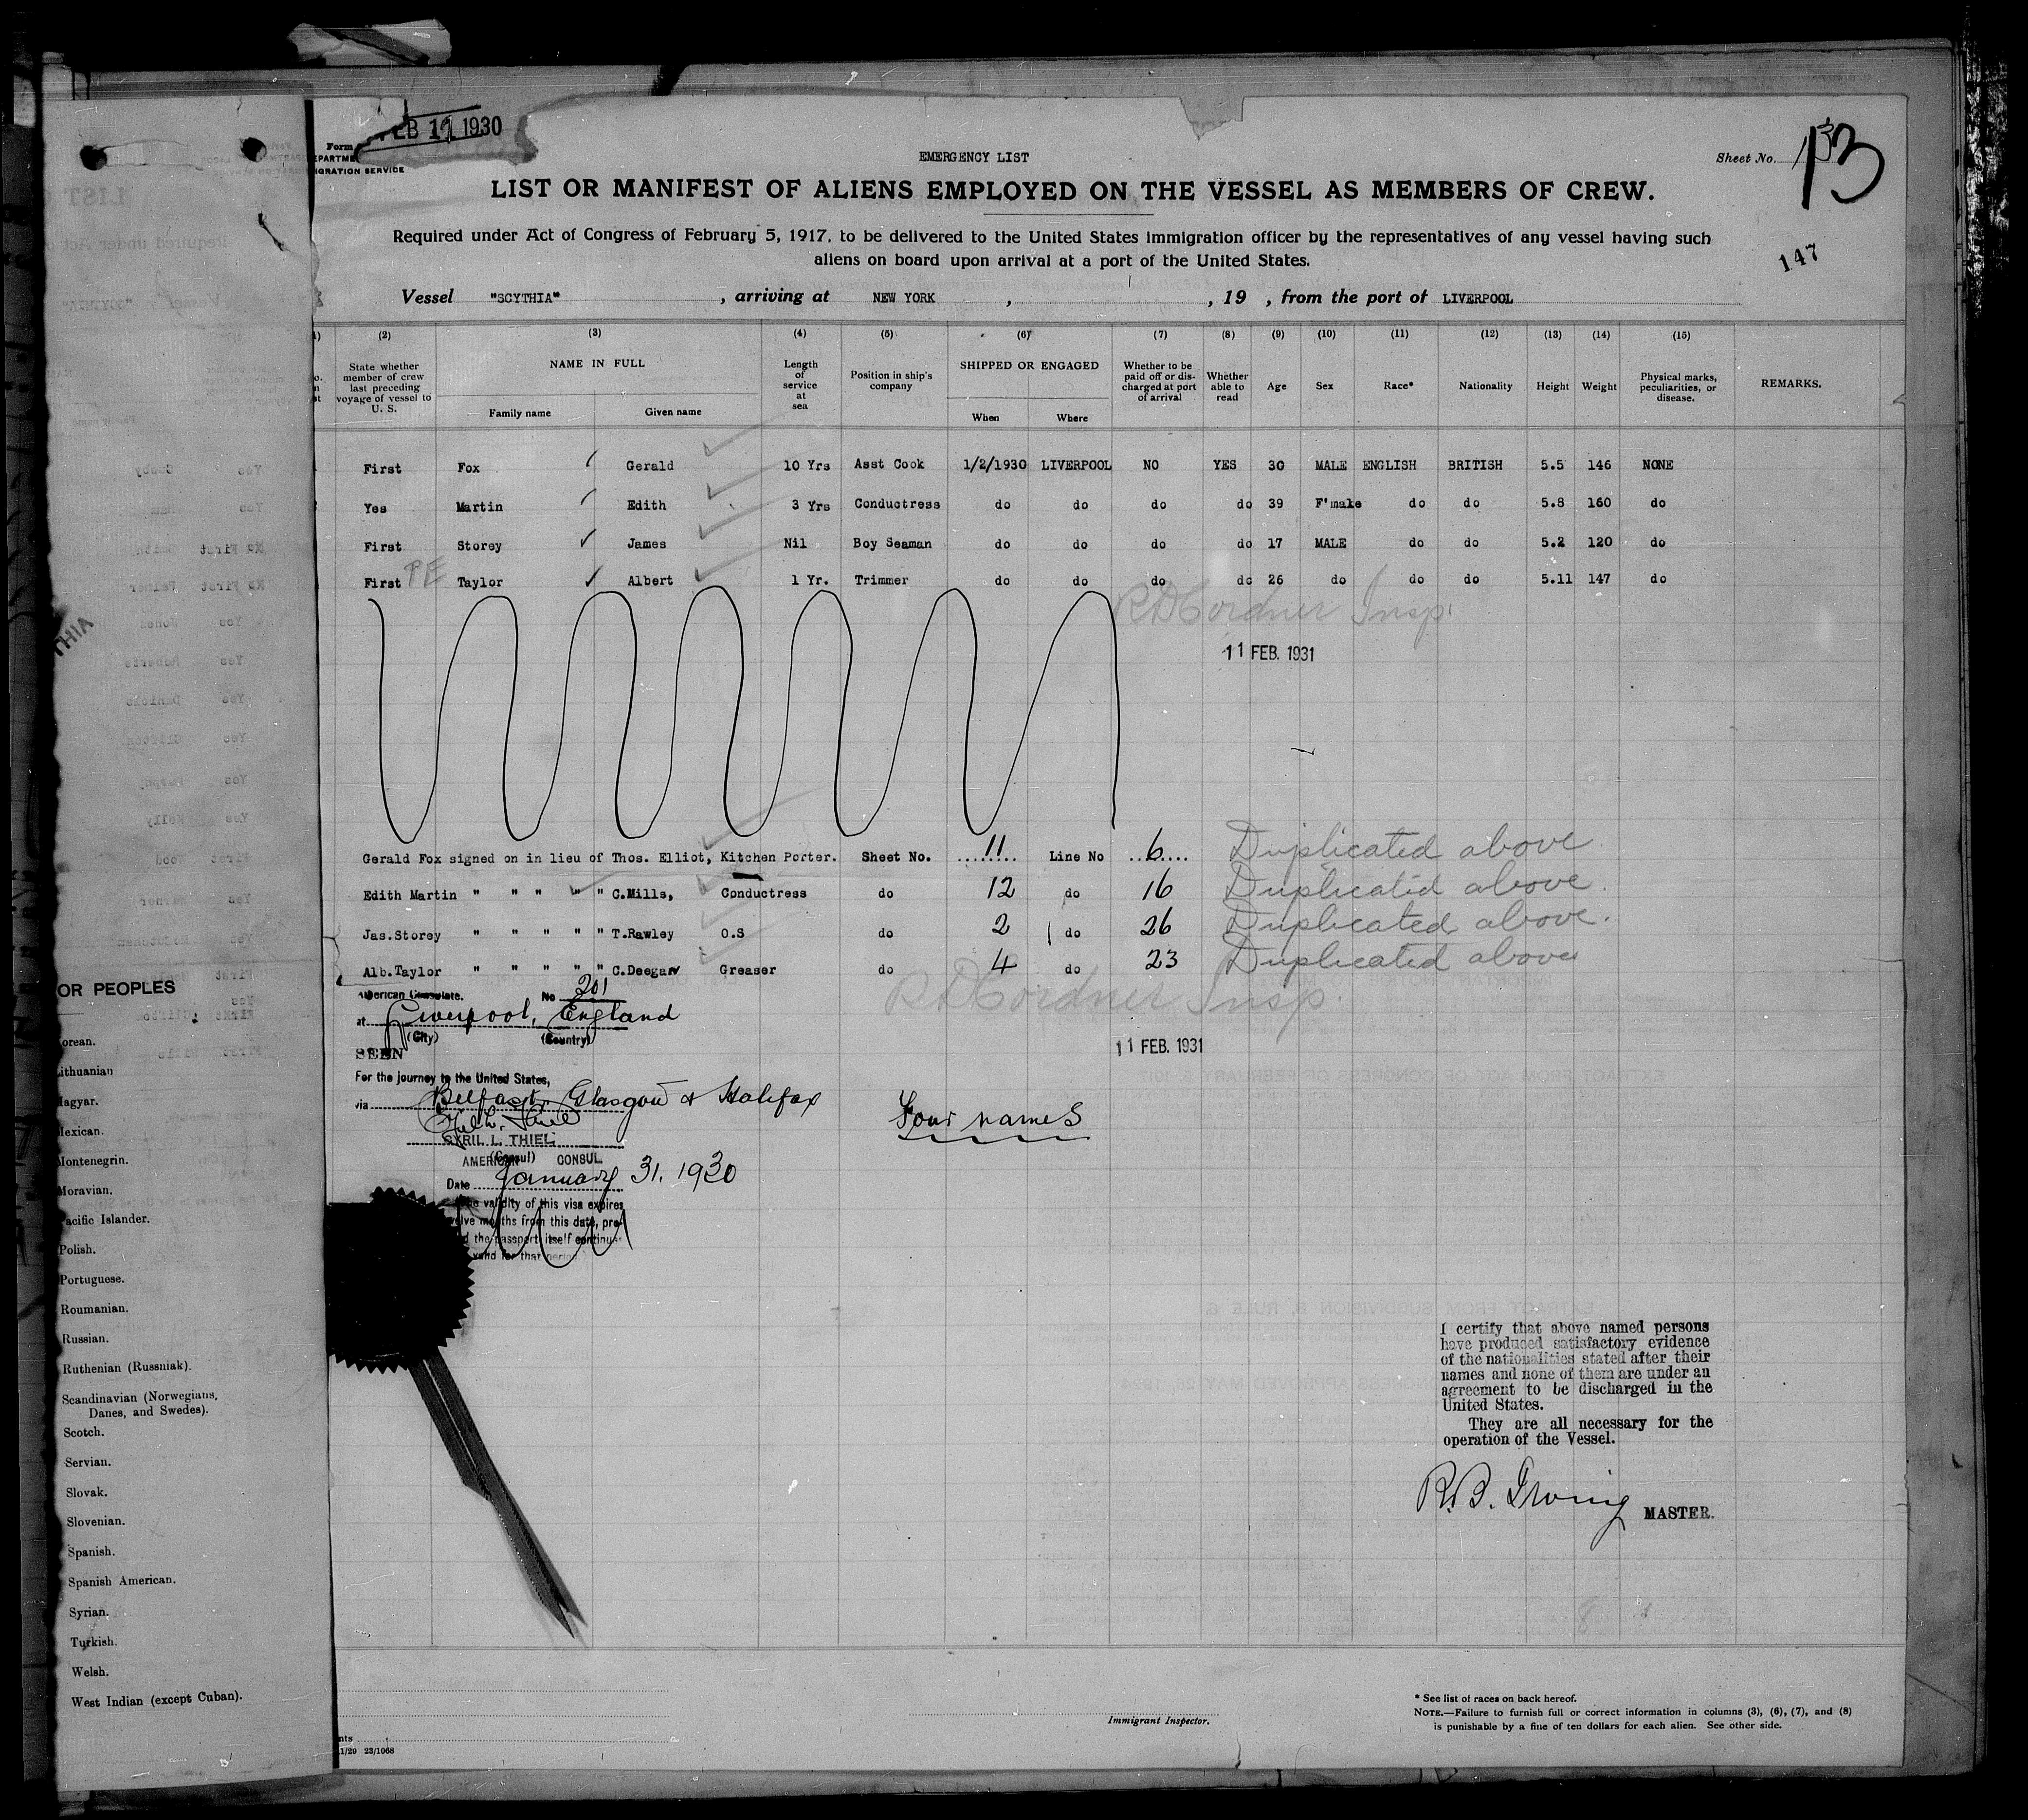 FEB 11 1930
Form
EMERGENCY LIST
Sheet No. 13
IGRATION SERVICE
LIST OR MANIFEST OF ALIENS EMPLOYED ON THE VESSEL AS MEMBERS OF CREW.
Required under Act of Congress of February 5, 1917, to be delivered to the United States immigration officer by the representatives of any vessel having such
aliens on board upon arrival at a port of the United States.
147
Vessel "SCYTHIA" , arriving at NEW YORK , , 19 , from the port of LIVERPOOL
(2) (3) (4) (5) (6) (7) (8) (9) (10) (11) (12) (13) (14) (15)
State whether member of crew last preceding voyage of vessel to U. S. NAME IN FULL Family name Given name Length of service at sea Position in ship's company SHIPPED OR ENGAGED When Where Whether to be paid off or discharged at port of arrival Whether able to read Age Sex Race* Nationality Height Weight Physical marks, peculiarities, or disease. REMARKS.
First Fox Gerald 10 Yrs Asst Cook 1/2/1930 LIVERPOOL NO YES 30 MALE ENGLISH BRITISH 5.5 146 NONE
Yes Martin Edith 3 Yrs Conductress do do do do 39 F'male do do 5.8 160 do
First Storey James Nil Boy Seaman do do do do 17 MALE do do 5.2 120 do
First PE Taylor Albert 1 Yr. Trimmer do do do do 26 do do do 5.11 147 do
R D Cordner Insp.
11 FEB. 1931
Gerald Fox signed on in lieu of Thos. Elliot, Kitchen Porter. Sheet No. 11 Line No 6 Duplicated above
Edith Martin " " " " " C.Mills, Conductress do 12 do 16 Duplicated above.
Jas.Storey " " " " " T.Rawley O.S do 2 do 26 Duplicated above.
Alb.Taylor " " " " " C.Deegan Greaser do 4 do 23 Duplicated above
R D Cordner Insp.
American Consulate. No 201
at Liverpool, England
(City) (Country)
SEEN
11 FEB. 1931
For the journey to the United States,
via Belfast, Glasgow & Halifax
Four names
CYRIL L. THIEL
AMERICAN (Consul) CONSUL
Date January 31. 1930
The validity of this visa expires
twelve months from this date, pro-
d the passport itself continues
valid for that period.
I certify that above named persons
have produced satisfactory evidence
of the nationalities stated after their
names and none of them are under an
agreement to be discharged in the
United States.
They are all necessary for the
operation of the Vessel.
R.B. Irving MASTER.
Immigrant Inspector.
* See list of races on back hereof.
NOTE.—Failure to furnish full or correct information in columns (3), (6), (7), and (8)
is punishable by a fine of ten dollars for each alien. See other side.
1/29 23/1068
THIA
OR PEOPLES
orean.
ithuanian
Magyar.
Mexican.
Montenegrin.
Moravian.
Pacific Islander.
Polish.
Portuguese.
Roumanian.
Russian.
Ruthenian (Russniak).
Scandinavian (Norwegians,
Danes, and Swedes).
Scotch.
Servian.
Slovak.
Slovenian.
Spanish.
Spanish American.
Syrian.
Turkish.
Welsh.
West Indian (except Cuban).